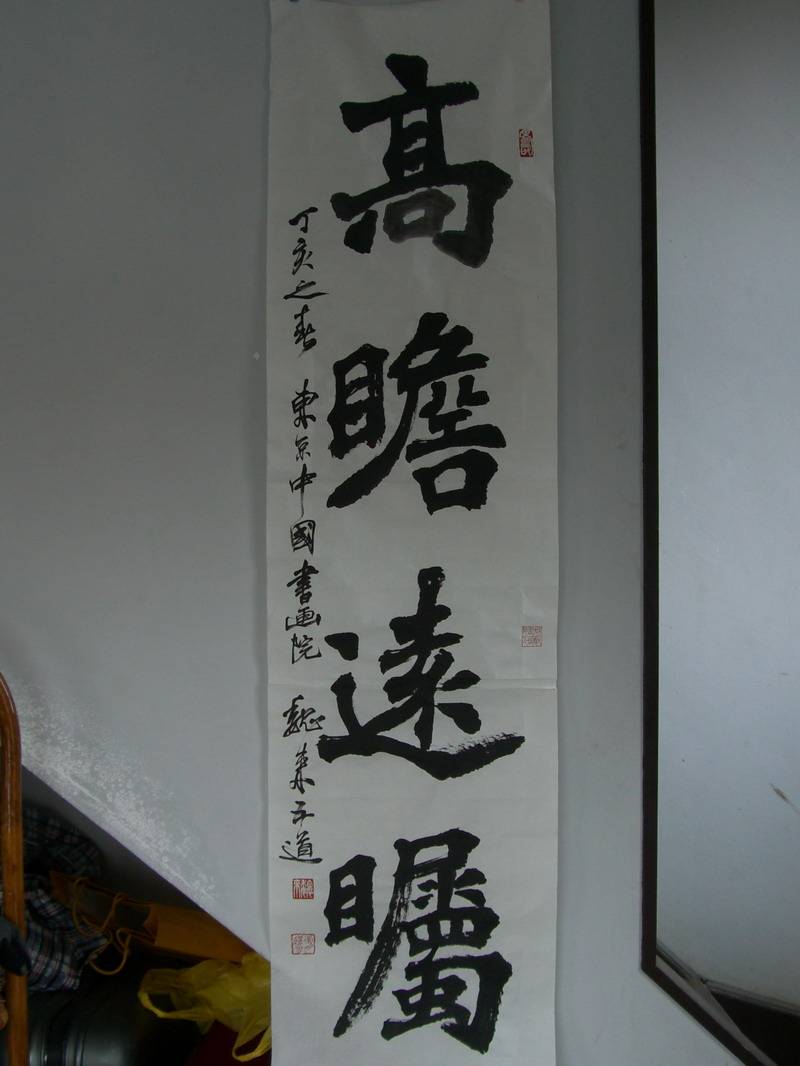 高瞻遠矚
丁亥之春 東京中國書画院 魏 道